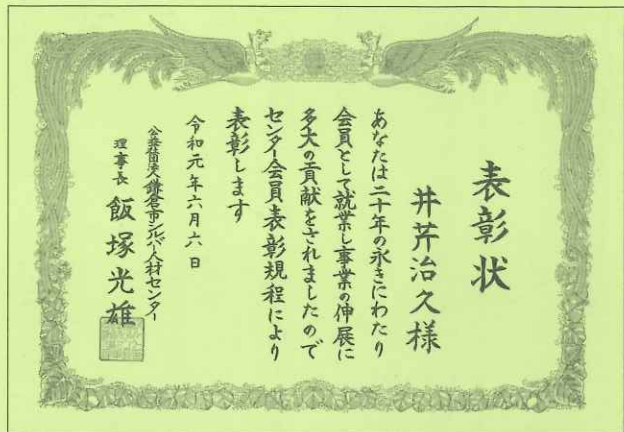 表彰状
井芹治久様
あなたは二十年の永きにわたり
会員として就業し事業の伸展に
多大の貢献をされましたので
センター会員表彰規程により
表彰します
令和元年六月六日
公益社団法人鎌倉市シルバー人材センター
理事長 飯塚光雄